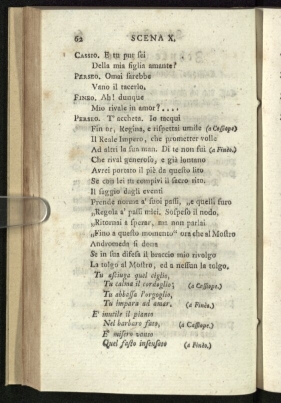 62 SCENA X.
CASSIO. E tu pur sei
Della mia figlia amante?
PERSEO. Omai sarebbe
Vano il tacerlo.
FINEO. Ah! dunque
Mio rivale in amor?....
PERSEO. T' accheta. Io tacqui
Fin or, Regina, e rispettai umile (a Cassiope)
Il Reale Impero, che prometter volle
Ad altri la sua man. Di te non fui (a Fineo.)
Che rival generoso, e già lontano
Avrei portato il piè da questo lito
Se con lei tu compivi il sacro rito.
Il saggio dagli eventi
Prende norma a' suoi passi, „e quelli suro
„Regola a' passi miei. Sospeso il nodo,
„Ritornai a sperar, ma non parlai
„Fino a questo momento" ora che al Mostro
Andromeda si dona
Se in sua difesa il braccio mio rivolgo
La tolgo al Mostro, ed a nessun la tolgo.
Tu asciuga quel ciglio,
Tu calma il cordoglio; (a Cassiope.)
Tu abbassa l'orgoglio,
Tu impara ad amar. (a Fineo.)
E' inutile il pianto
Nel barbaro fato, (a Cassiope.)
E' misero vanto
Quel fasto insensato (a Fineo.)